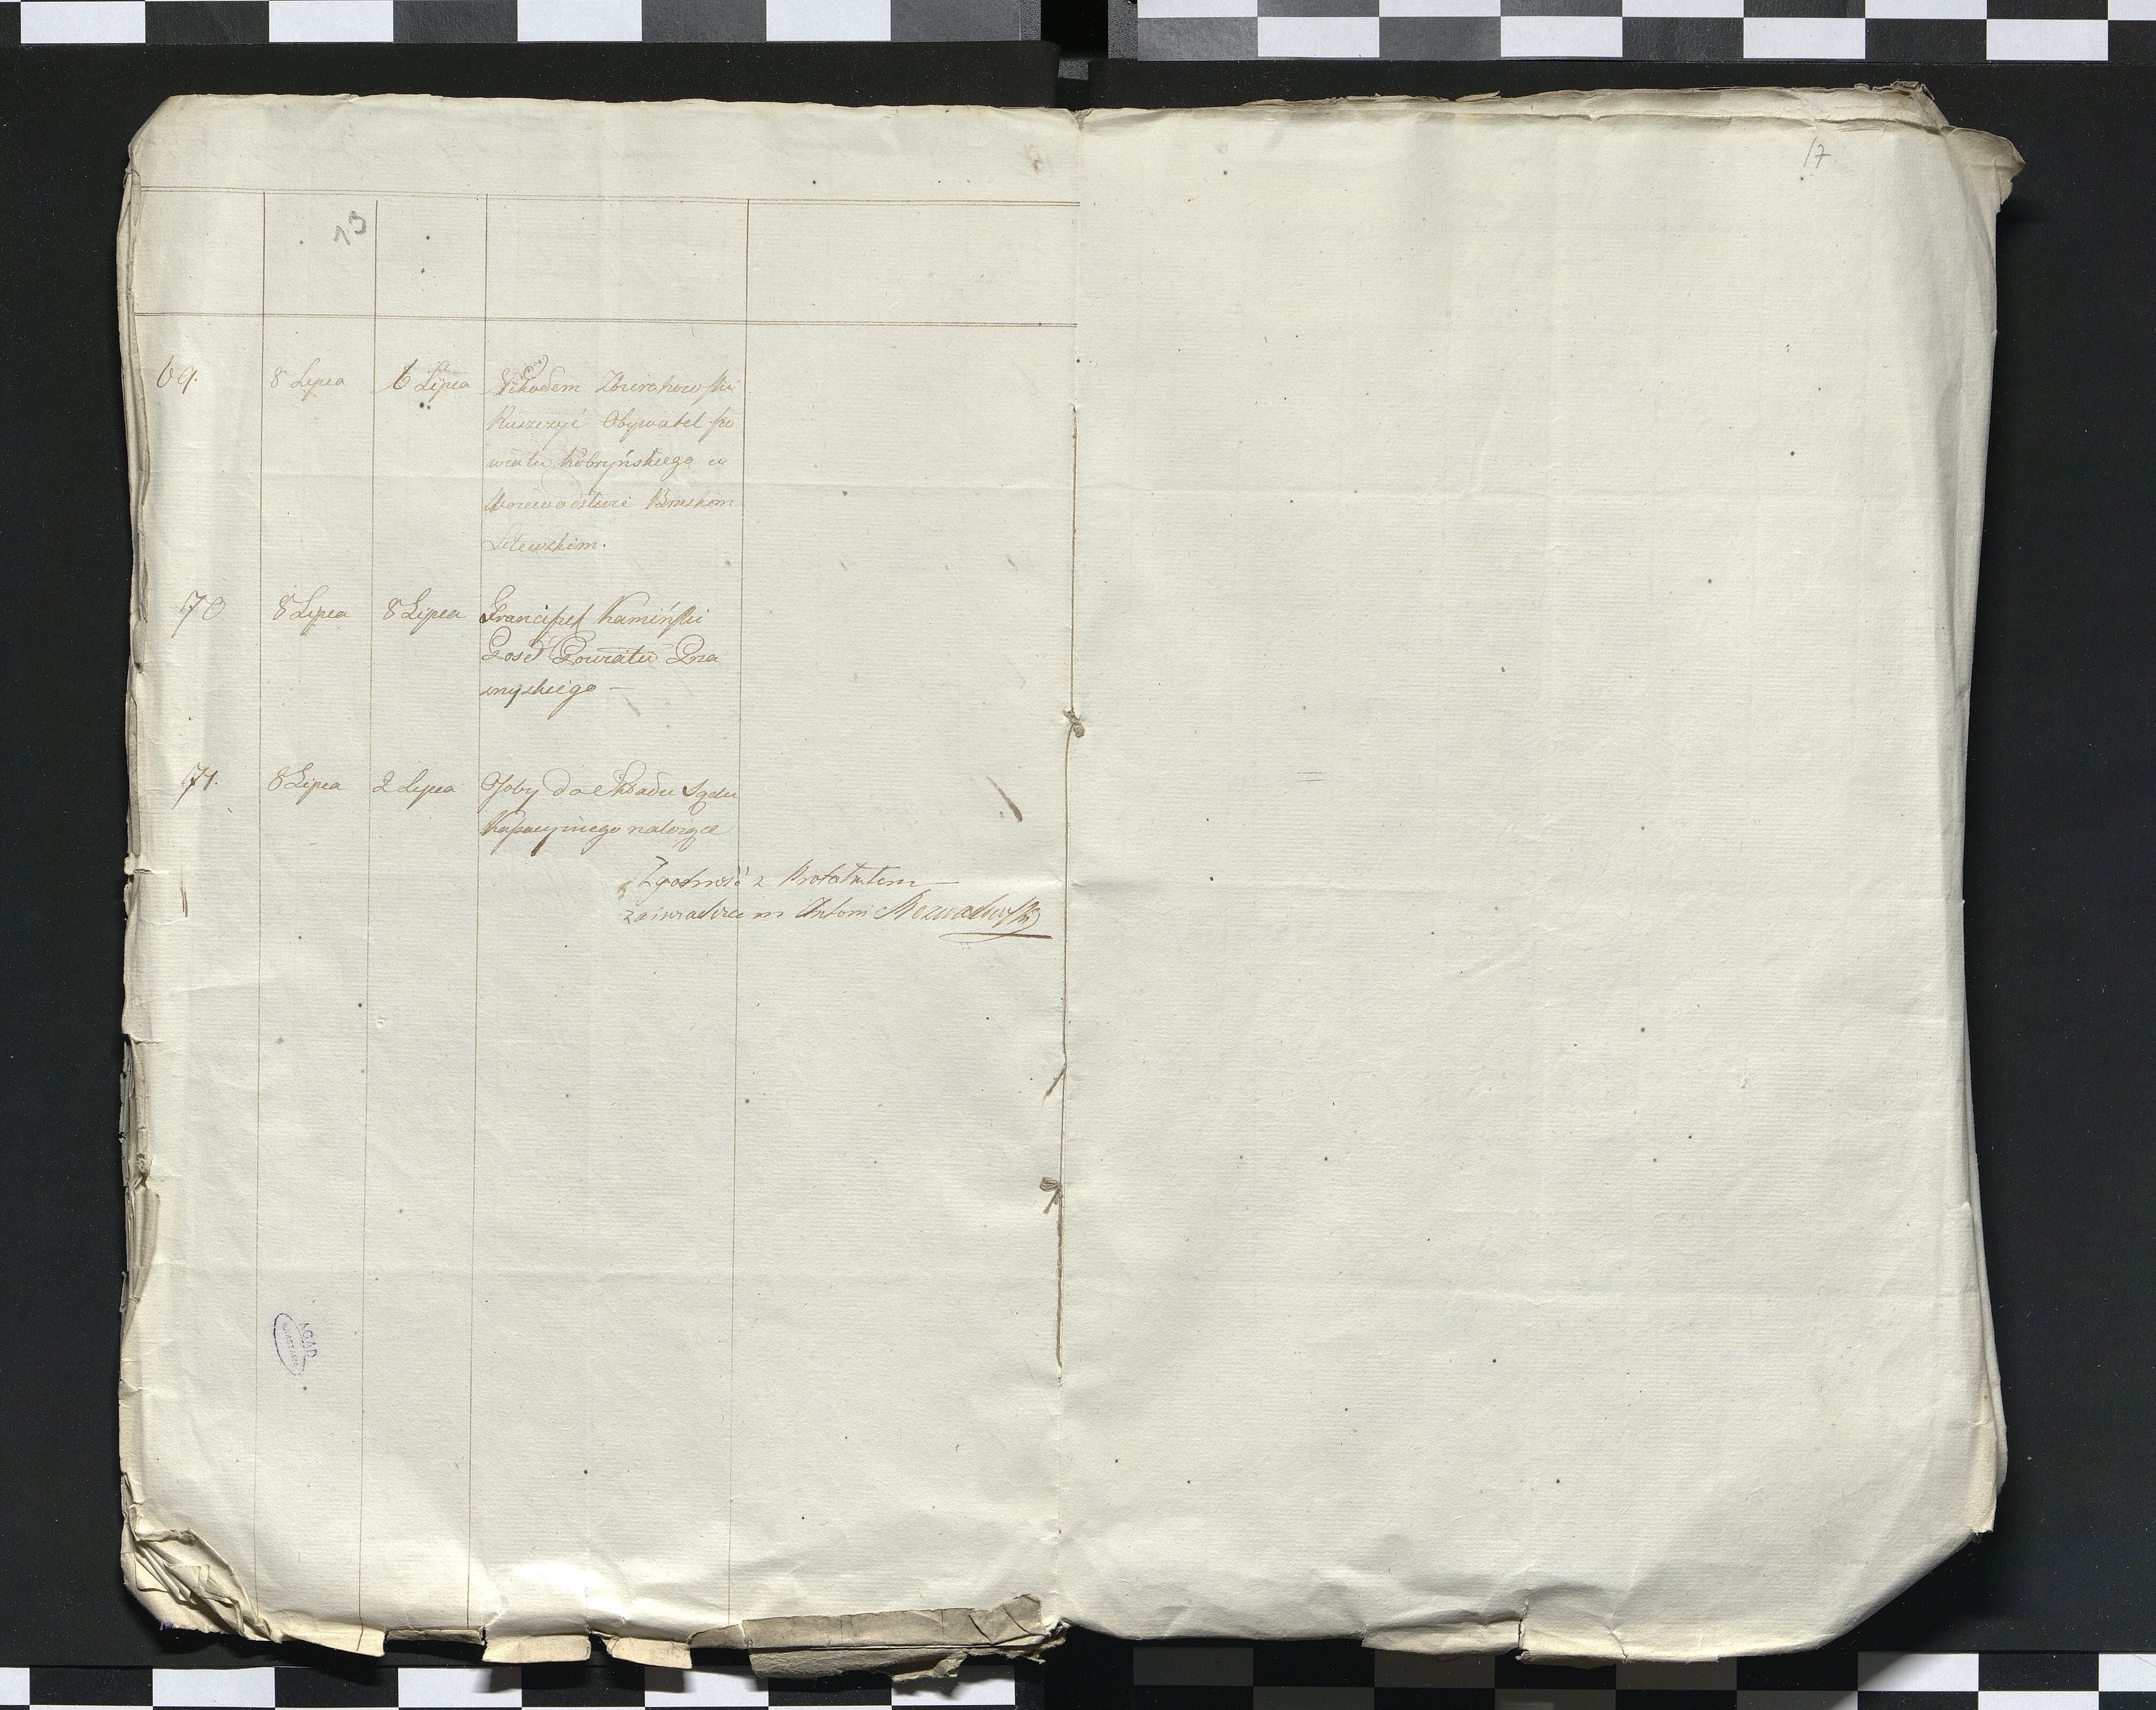 17
13
69. 8 Lipca 6 Lipca Nikodem
Ruszczyć Obywatel po
wiatu Kobryńskiego w
Województwie Brzeskom
Litewskim.
70 8 Lipca 8 Lipca Franciszek Kamiński
Poseł Powiatu Prza
snyskiego —
71. 8 Lipca 2 Lipca Osoby do Składu Sądu
Kassacyjnego należące
Zgodność z
zaświadczam Antoni
AGAD
WARSZAWA